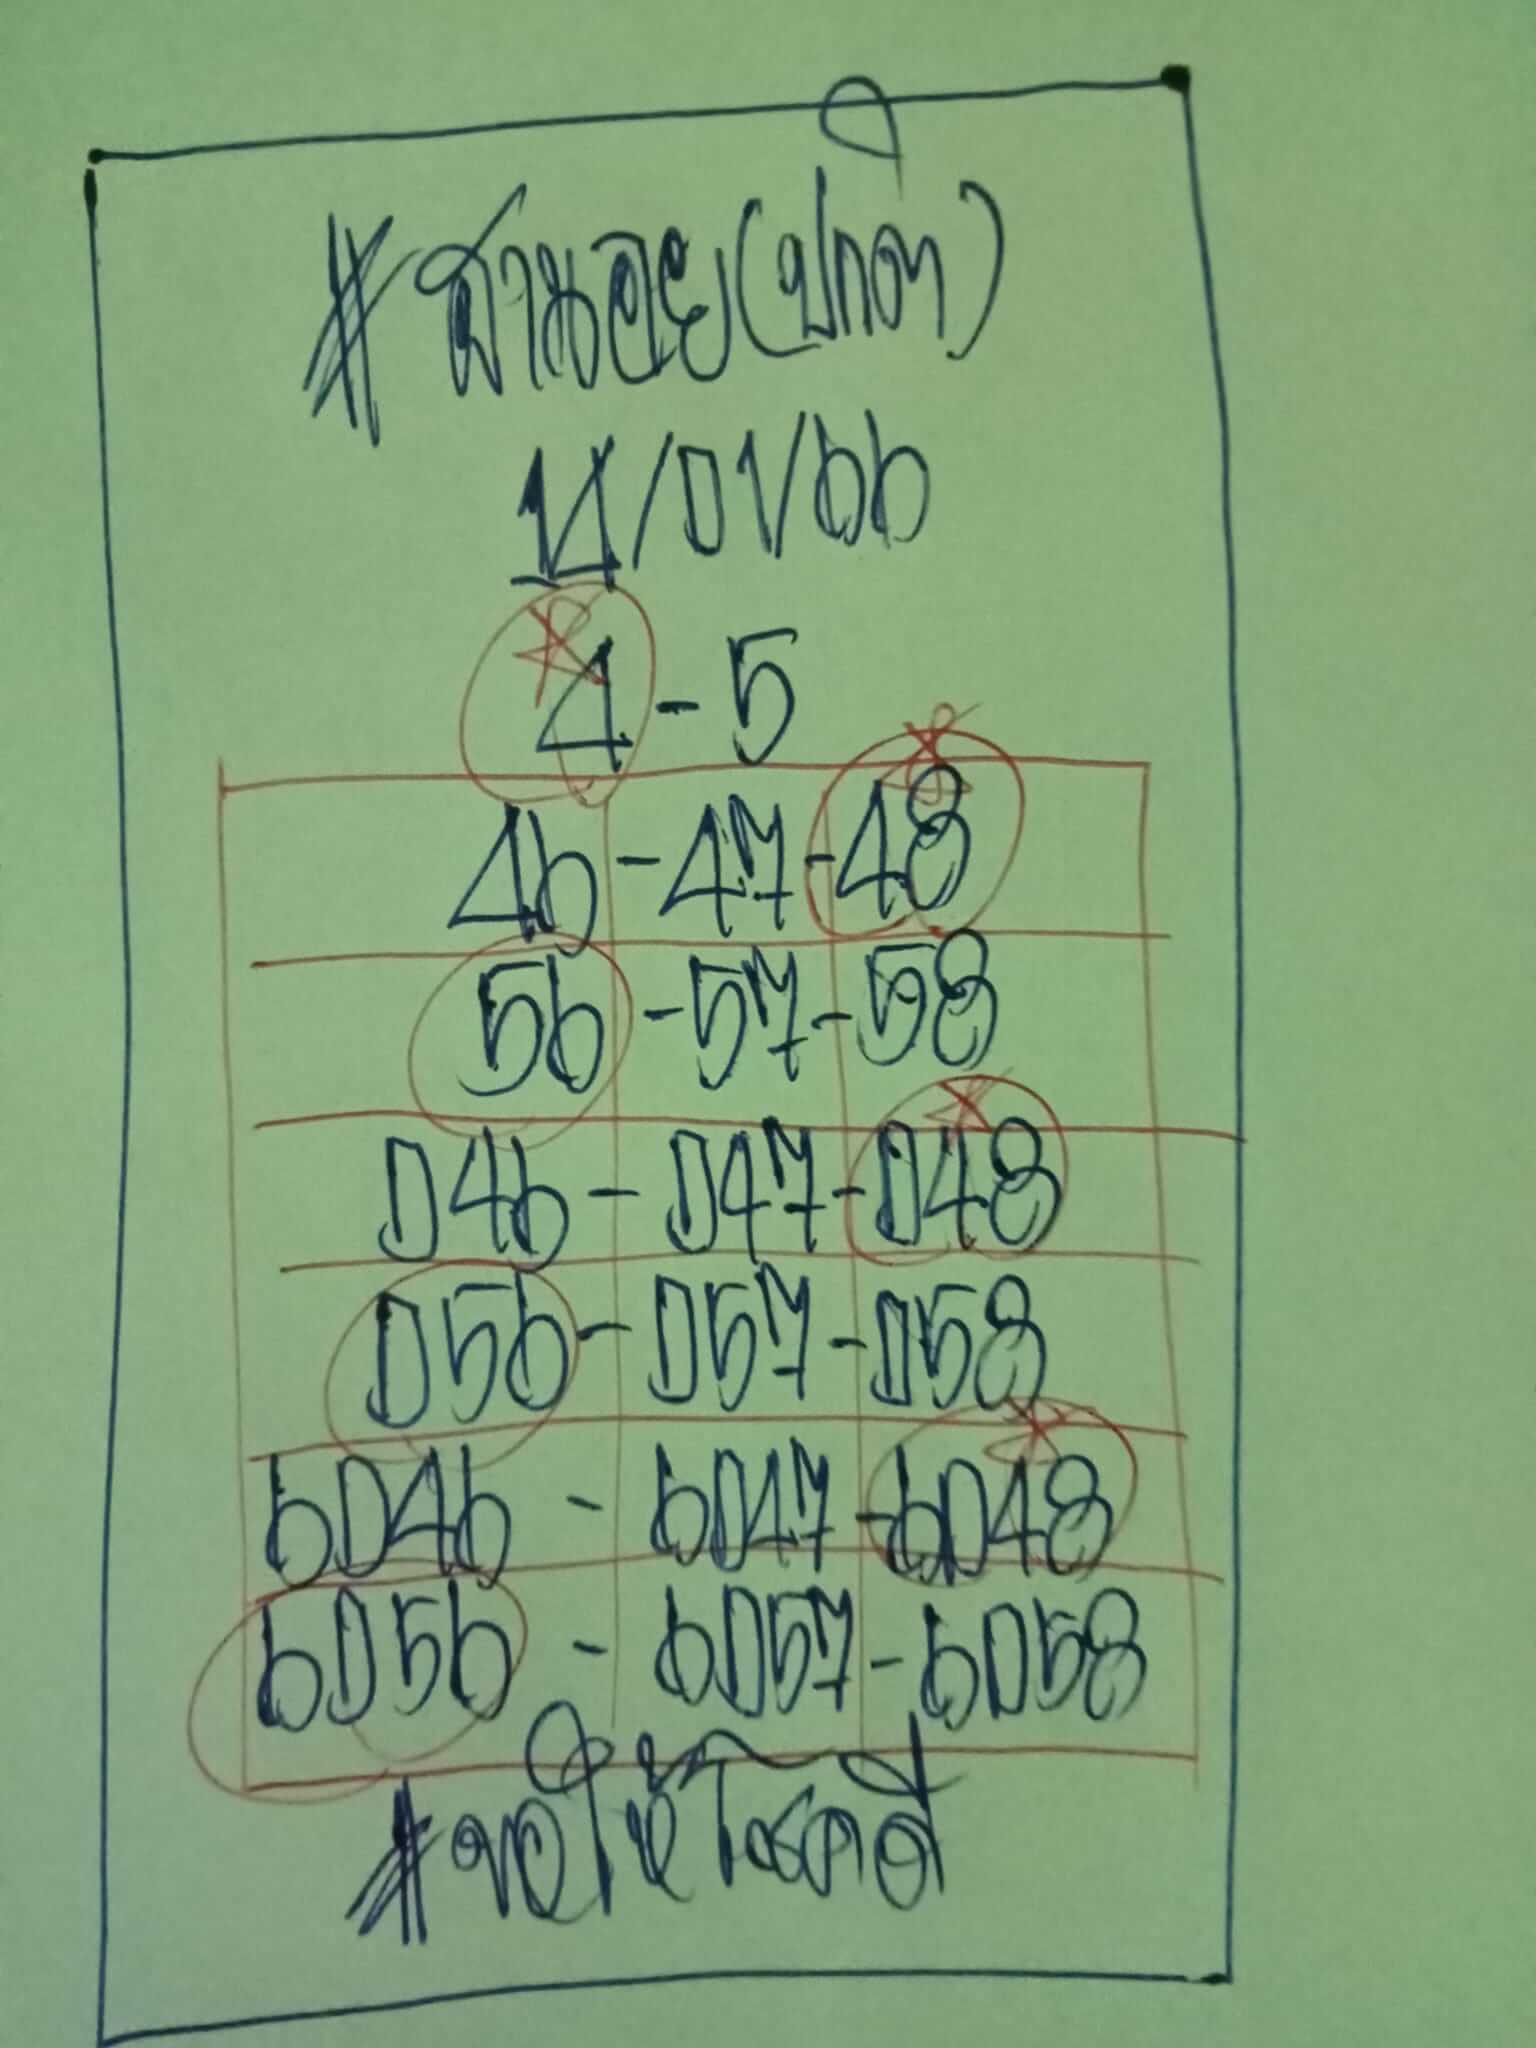 #ฮานอย(ปกติ)
14/01/66
4-5
46-47-48
56-57-58
046-047-048
056-057-058
6046-6047-6048
6056-6057-6058
#ขอให้โชคดี